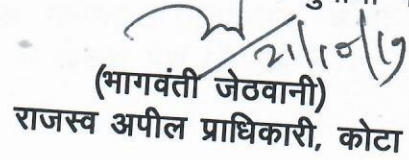 21/10/19
(भागवंती जेठवानी)
राजस्व अपील प्राधिकारी, कोटा